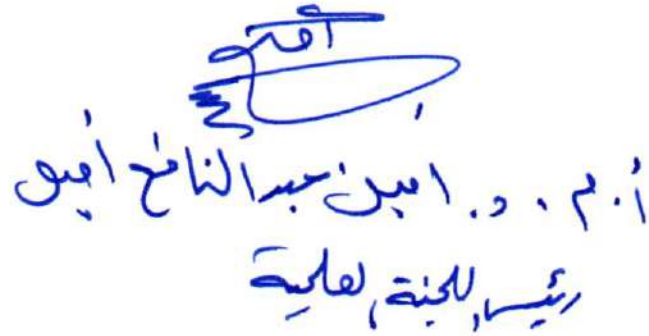 أمين
أ.م.د. امين عبد النافع أمين
رئيس اللجنة العلمية